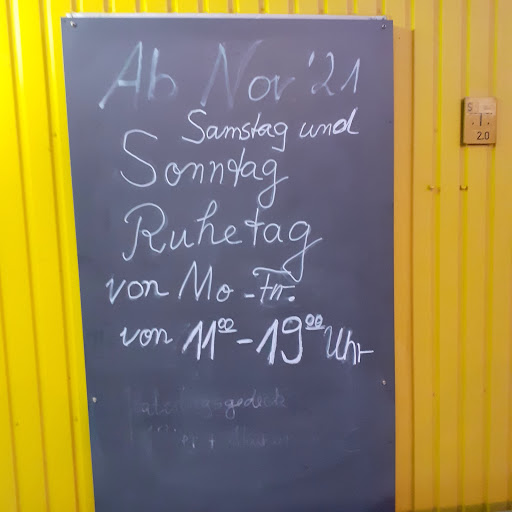 Ab Nov '21
Samstag und
Sonntag
Ruhetag
von Mo - Fr.
von 11⁰⁰ - 19⁰⁰ Uhr
S
1
2.0